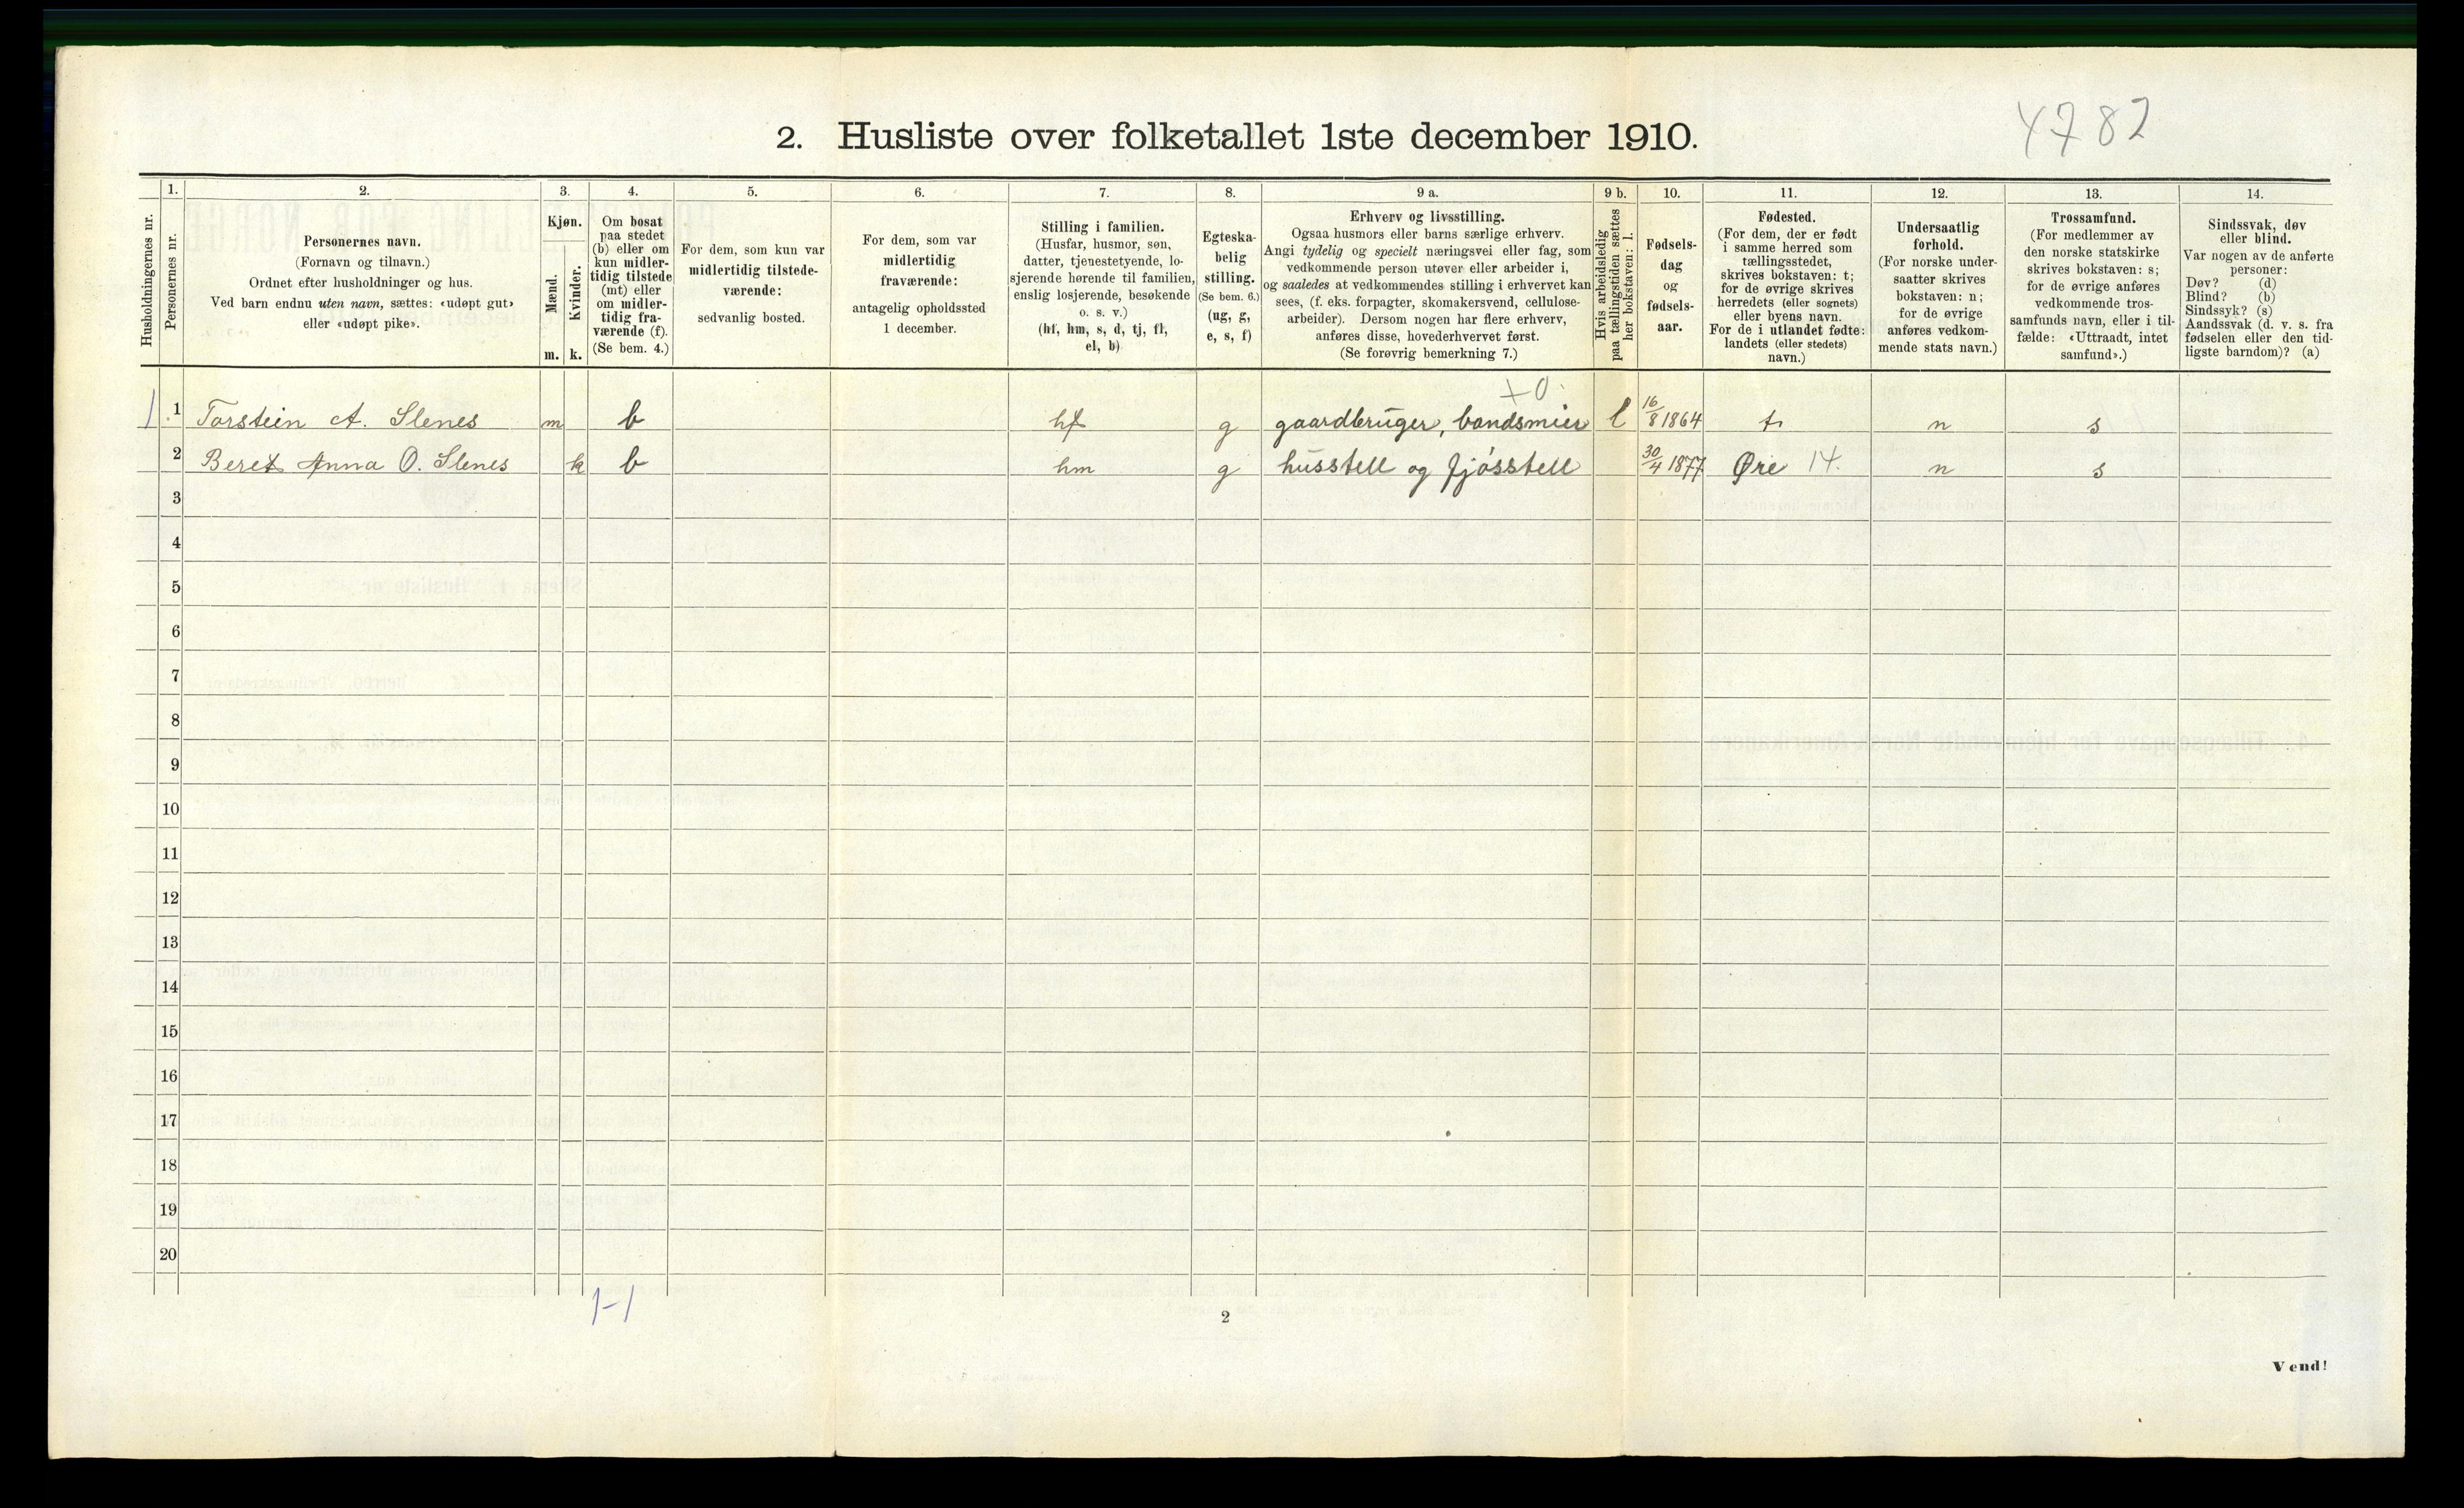 4782
2. Husliste over folketallet 1ste december 1910.
Husholdningernes nr.
1.
Personernes nr.
2.
Personernes navn.
(Fornavn og tilnavn.)
Ordnet efter husholdninger og hus.
Ved barn endnu uten navn, sættes: «udøpt gut»
eller «udøpt pike».
3.
Kjøn.
Mænd.
Kvinder.
m.
k.
4.
Om bosat
paa stedet
(b) eller om
kun midler-
tidig tilstede
(mt) eller
om midler-
tidig fra-
værende (f).
(Se bem. 4.)
5.
For dem, som kun var
midlertidig tilstede-
værende:
sedvanlig bosted.
6.
For dem, som var
midlertidig
fraværende:
antagelig opholdssted
1 december.
7.
Stilling i familien.
(Husfar, husmor, søn,
datter, tjenestetyende, lo-
sjerende hørende til familien,
enslig losjerende, besøkende
o. s. v.)
(hf, hm, s, d, tj, fl,
el, b)
8.
Egteska-
belig
stilling.
(Se bem. 6.)
(ug, g,
e, s, f)
9 a.
Erhverv og livsstilling.
Ogsaa husmors eller barns særlige erhverv.
Angi tydelig og specielt næringsvei eller fag, som
vedkommende person utøver eller arbeider i,
og saaledes at vedkommendes stilling i erhvervet kan
sees, (f. eks. forpagter, skomakersvend, cellulose-
arbeider). Dersom nogen har flere erhverv,
anføres disse, hovederhvervet først.
(Se forøvrig bemerkning 7.)
9 b.
Hvis arbeidsledig
paa tællingstiden sættes
her bokstaven: l.
10.
Fødsels-
dag
og
fødsels-
aar.
11.
Fødested.
(For dem, der er født
i samme herred som
tællingsstedet,
skrives bokstaven: t;
for de øvrige skrives
herredets (eller sognets)
eller byens navn.
For de i utlandet fødte:
landets (eller stedets)
navn.)
12.
Undersaatlig
forhold.
(For norske under-
saatter skrives
bokstaven: n;
for de øvrige
anføres vedkom-
mende stats navn.)
13.
Trossamfund.
(For medlemmer av
den norske statskirke
skrives bokstaven: s;
for de øvrige anføres
vedkommende tros-
samfunds navn, eller i til-
fælde: «Uttraadt, intet
samfund».)
14.
Sindssvak, døv
eller blind.
Var nogen av de anførte
personer:
Døv? (d)
Blind? (b)
Sindssyk? (s)
Aandssvak (d. v. s. fra
fødselen eller den tid-
ligste barndom)? (a)
+0
1 1 Torstein A. Slenes m b hf g gaardbruger, bandsmier l 16/8 1864 t n s
2 Beret Anna O. Slenes k b hm g husstell og fjósstell 30/4 1877 Øre 14. n s
3
4
5
6
7
8
9
10
11
12
13
14
15
16
17
18
19
20
1-1
2
Vend!